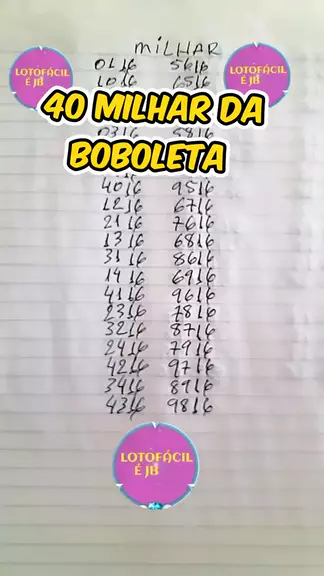 MILHAR
LOTOFÁCIL
É JB
LOTOFÁCIL
É JB
0116 5616
1016 6516
40 MILHAR DA
BOBOLETA
0316 5816
4016 9516
1216 6716
2116 7616
1316 6816
3116 8616
1416 6916
4116 9616
2316 7816
3216 8716
2416 7916
4216 9716
3416 8916
4316 9816
LOTOFÁCIL
É JB